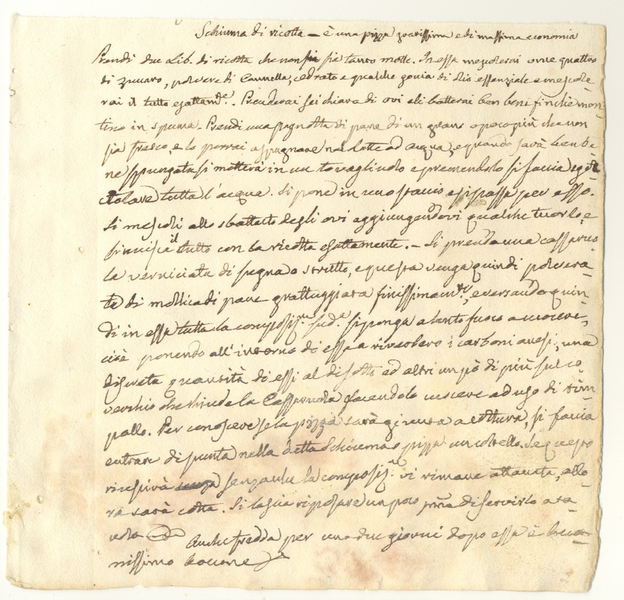 Schiuma di ricotta — è una pizza gratissima e di massima economia
Prendi due Lib. di ricotta che non sia sia tanto molle. In essa mescolerai once quattro
di zuccaro, polvere di Cannella, cedrato e qualche goccia di olio essenziale e mescole-
rai il tutto esattam.e. Prenderai sei chiara di ovi eli batterai ben bene finchè mon-
tino in spuma. Prendi una pagnotta di pane di un grano o poco più che non
sia fresco, e lo porrai a spugnare nel latte od acqua, e quando sarà ben be-
ne spugnata si metterà in un tovagliuolo e premendolo si faccia
tutta l'acqua. Si pone in uno staccio e si passa per esso.
Si mescoli allo sbattuto degli ovi aggiungendovi qualche tuorlo, e
si unisca il tutto con la ricotta esattamente. — Si prenda una cassaruo-
la verniciata di segna o strutto, e questa venga quindi polvera-
ta di mollica di pane grattuggiata finissimam.te, e versando quin-
di in essa tutta la composiz.ne sud.a si ponga a lento fuoco a cuocere,
cioè ponendo all'intorno di essa a riverbero i carboni accesi, una
discreta quantità di essi al disotto ed altri un pò di più sul co-
verchio che chiude la Cassaruola facendolo cuocere ad uso di tim-
pallo. Per conoscere se la pizza sarà giunta a cottura, si faccia
entrare di punta nella detta Schiuma o pizza un coltello. Se questo
riescirà senza che la composiz.ne vi rimane attaccata, allo-
ra sarà cotta. Si lascia riposare un poco prima di servirlo a ta-
vola
Anche fredda per uno due giorni dopo essa è buo-
nissimo boccone